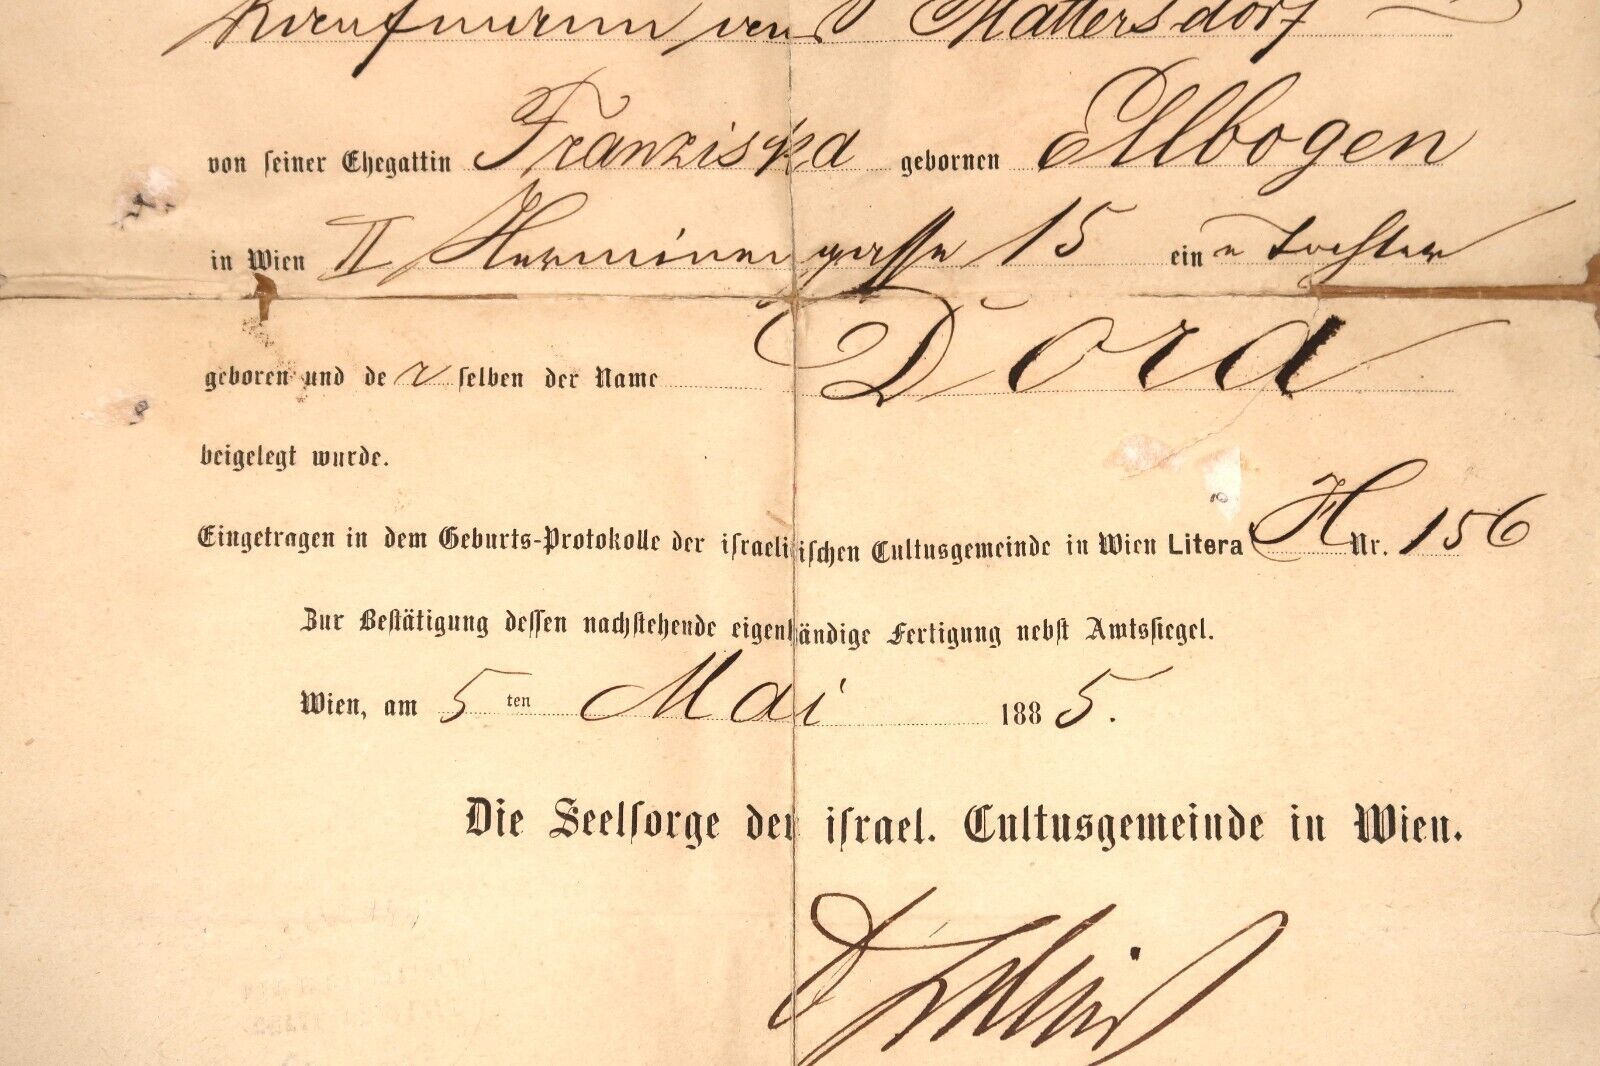 Kaufmann von Mattersdorf
von seiner Ehegattin Franziska gebornen Ellbogen
in Wien II Herminengasse 15 eine Tochter
geboren und der selben der Name Dora
beigelegt wurde.
Eingetragen in dem Geburts-Protokolle der israelitischen Cultusgemeinde in Wien Litera H Nr. 156
Zur Bestätigung dessen nachstehende eigenhändige Fertigung nebst Amtssiegel.
Wien, am 5ten Mai 1885.
Die Seelsorge der israel. Cultusgemeinde in Wien.